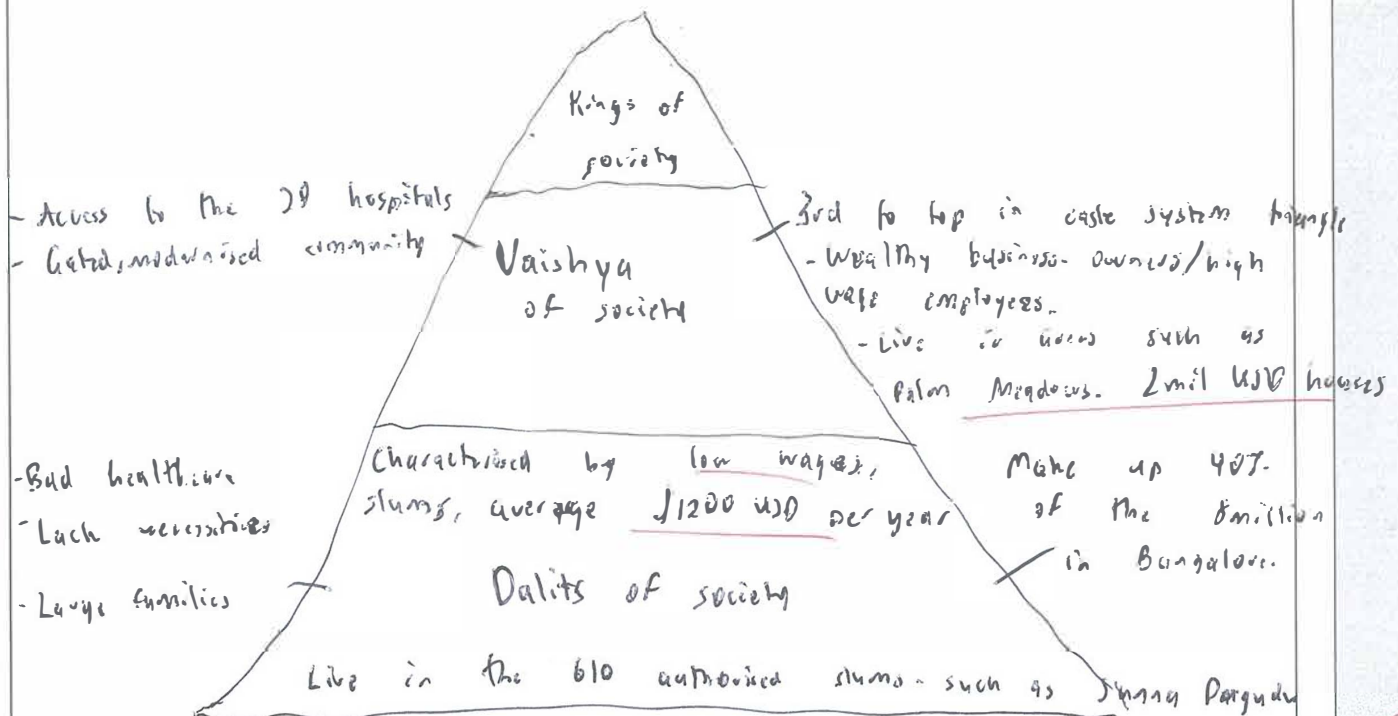 Kings of
society
- Access to the hospitals
- Gated, modernised community
Vaishya
of society
3rd to top in caste system triangle
- Wealthy business-owners/high
wage employees.
- Live in areas such as
Palm Meadows. 2mil USD houses
- Bad healthcare
- Lack necessities
- Large families
Characterised by low wages,
slums, average $1200 USD per year
Dalits of society
Make up 40%
of the 8million
in Bangalore.
Live in the 610 authorised slums - such as